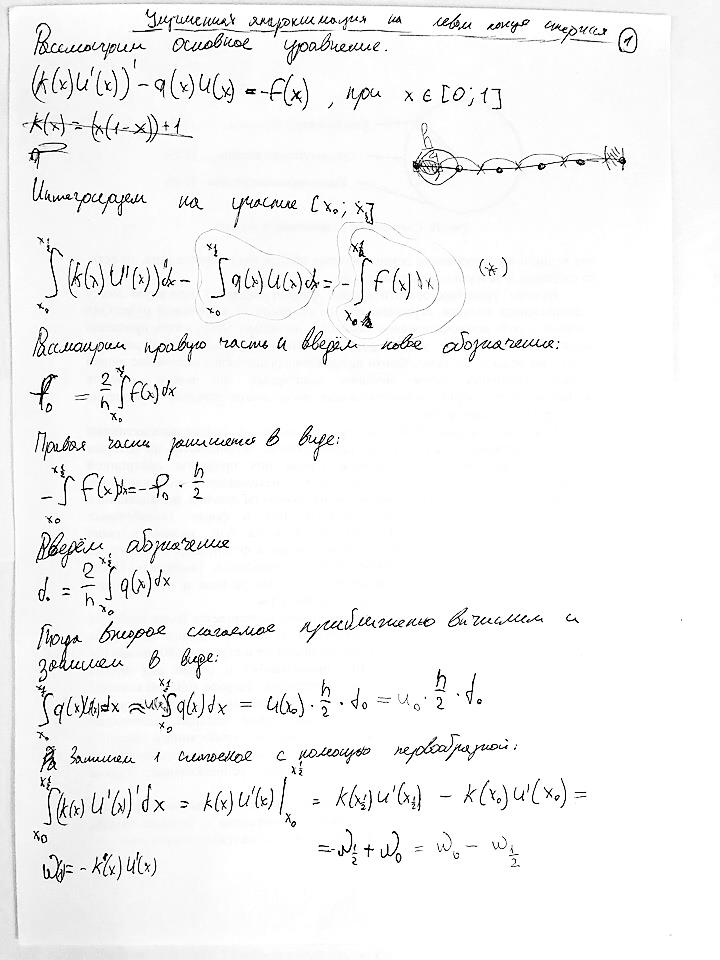 Улучшенная аппроксимация на левом конце стержня ①
Рассмотрим основное уравнение.
(k(x)u'(x))' - q(x)u(x) = -f(x), при x ∈ [0; 1]
k(x) = (x(1-x))+1
h
Интегрируем на участке [x₀; x_½]
∫_{x₀}^{x_½} (k(x)u'(x))'dx - ∫_{x₀}^{x_½} q(x)u(x)dx = -∫_{x₀}^{x_½} f(x)dx (*)
Рассмотрим правую часть и введём новое обозначение:
φ₀ = 2/h ∫_{x₀}^{x_½} f(x)dx
Правая часть запишется в виде:
-∫_{x₀}^{x_½} f(x)dx = -φ₀ · h/2
Введём обозначение
d₀ = 2/h ∫_{x₀}^{x_½} q(x)dx
Тогда второе слагаемое приближенно вычислим и
запишем в виде:
∫_{x₀}^{x_½} q(x)u(x)dx ≈ u(x₀) ∫_{x₀}^{x_½} q(x)dx = u(x₀) · h/2 · d₀ = u₀ · h/2 · d₀
Запишем 1 слагаемое с помощью первообразной:
∫_{x₀}^{x_½} (k(x)u'(x))'dx = k(x)u'(x)|_{x₀}^{x_½} = k(x_½)u'(x_½) - k(x₀)u'(x₀) =
= -w_½ + w₀ = w₀ - w_½
w = -k(x)u'(x)